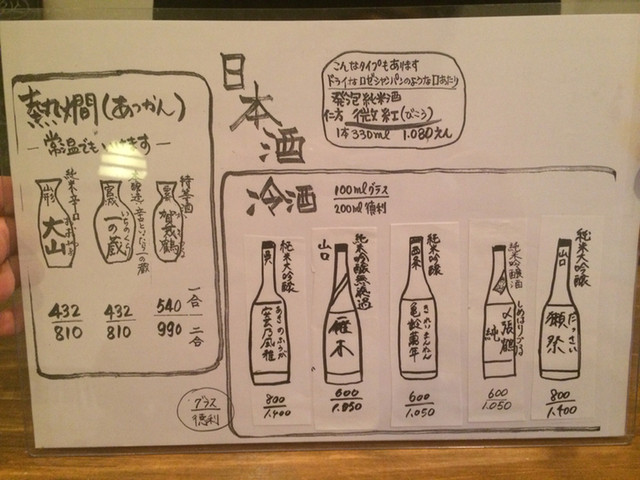 日本酒
こんなタイプもあります
ドライなロゼシャンパンのような口あたり
発泡純米酒
仁方 微紅(びこう)
1本330ml 1.080えん
熱燗(あつかん)
常温でも
純米辛口
山形
大山
432
810
一の蔵
いちのくら
432
810
特等酒
賀茂鶴
540
990
一合
二合
冷酒
100mlグラス
200ml徳利
純米大吟醸
呉
あきのふうが
安芸乃風雅
800
1.400
純米吟醸無濾過
山口
雁木
600
1.050
純米吟醸
西条
きれいまんねん
亀齢萬年
600
1.050
純米吟醸酒
しめはりづる
〆張鶴
純
600
1.050
純米大吟醸
山口
だっさい
獺祭
800
1.400
グラス
徳利